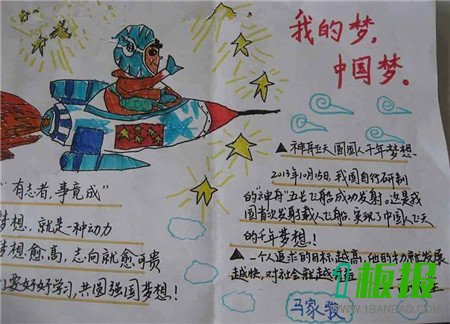 我的梦，
中国梦。
▲神舟飞天圆国人千年梦想.
2013年10月15日,我国自行研制
的"神舟"五号飞船成功发射。这是我
国首次发射载人飞船,实现了中国人飞天
的千年梦想.!
▲一个人追求的目标越高,他的才力就发展
越快,对社会就越
马家骏
"有志者,事竟成"
梦想,就是一种动力
梦想愈高,志向就愈可贵
们要好好学习,共圆强国梦想.!
板报
WWW.1BANBAO.COM